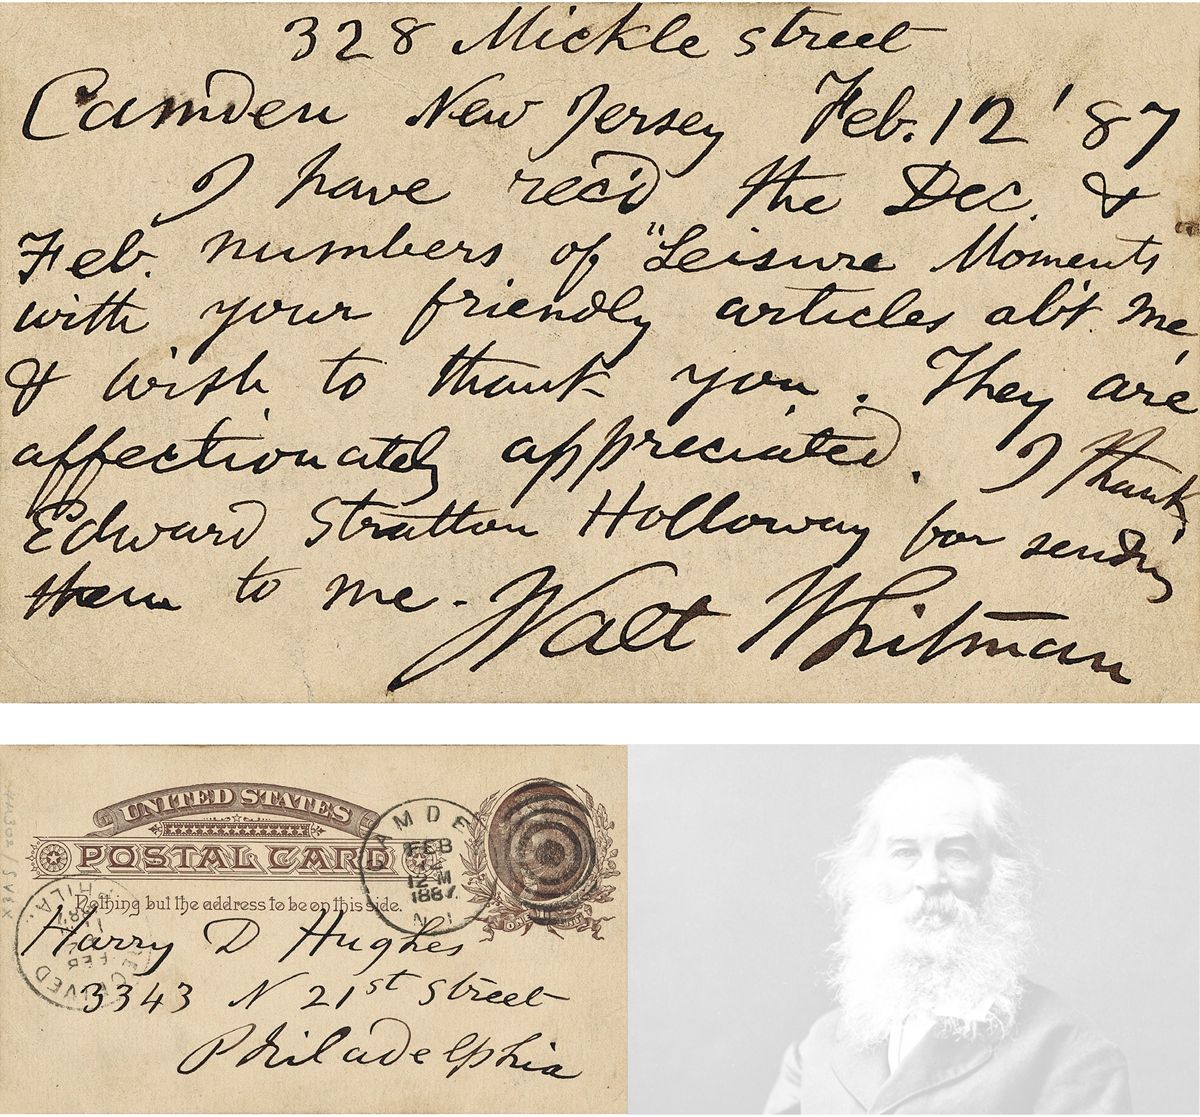 328 Mickle street
Camden New Jersey Feb. 12 '87
I have rec'd the Dec. &
Feb. numbers of "Leisure Moments
with your friendly articles ab't me,
& wish to thank you. They are
affectionately appreciated. I thank
Edward Stratton Holloway for sending
them to me - Walt Whitman
UNITED STATES
POSTAL CARD
Nothing but the address to be on this side.
CAMDEN
FEB
12
12 M
1887
N.J.
ONE CENT
RECEIVED
FEB
PHILA.
Harry D Hughes
3343 N 21st street
Philadelphia